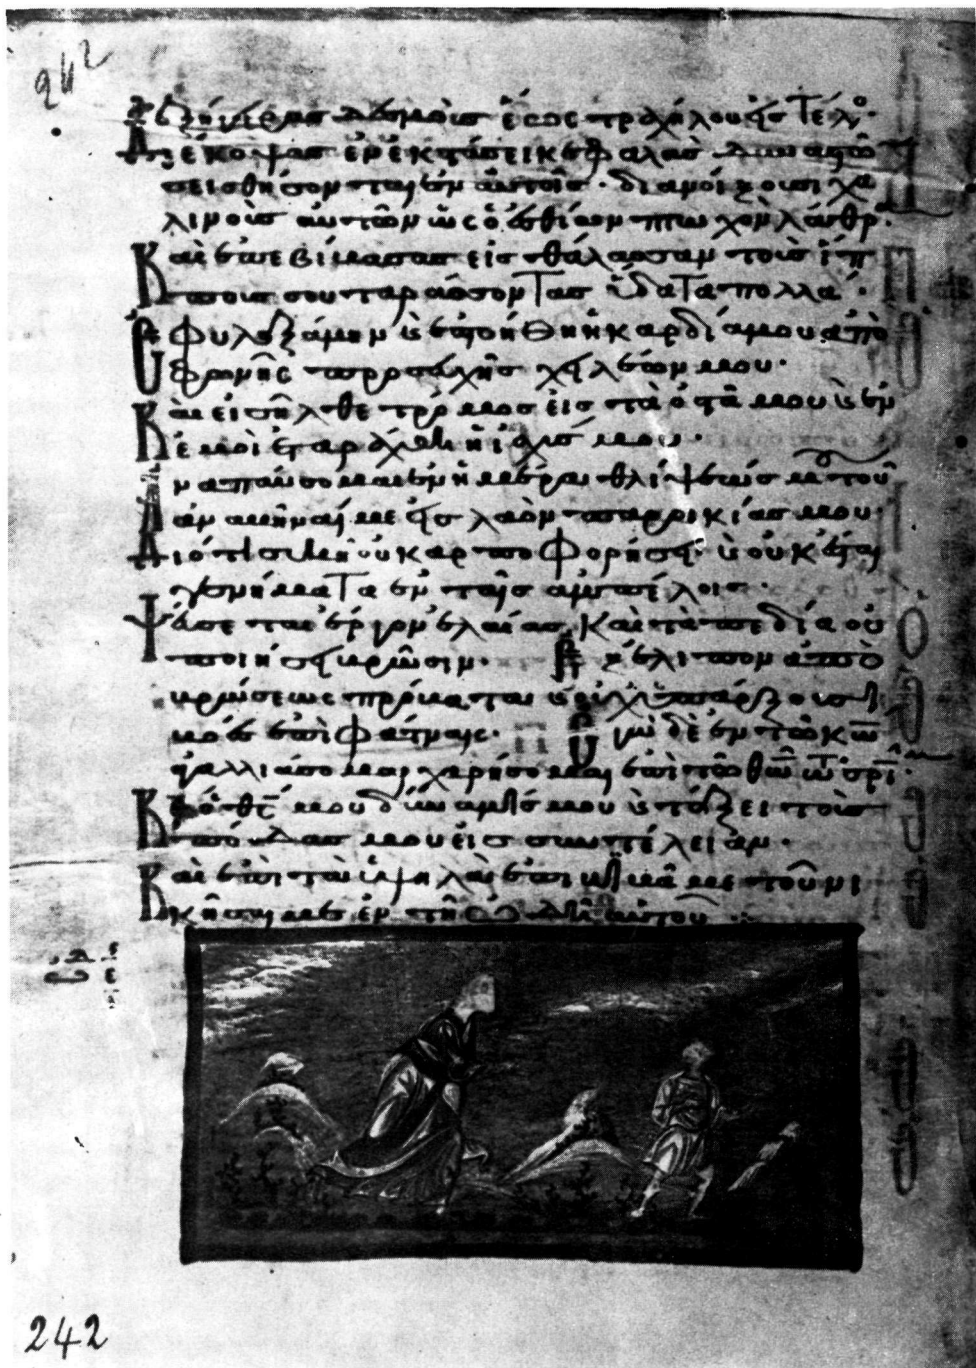 242
ἐξήγειρας δεσμοὺς ἕως τραχήλου εἰς τέλος·
Διέκοψας ἐν ἐκστάσει κεφαλὰς δυναστῶν
σεισθήσονται ἐν αὐτοῖς· διανοίξουσι χα
λινοὺς αὐτῶν ὡς ὁ ἐσθίων πτωχὸν λάθρα·
Καὶ ἐπεβίβασας εἰς θάλασσαν τοὺς ἵπ
πους σου ταράσσοντας ὕδατα πολλά·
Ἐφυλαξάμην καὶ ἐπτοήθη ἡ καρδία μου ἀπὸ
φωνῆς προσευχῆς χειλέων μου·
Καὶ εἰσῆλθε τρόμος εἰς τὰ ὀστᾶ μου καὶ ἐν
ἐμοὶ ἐταράχθη ἡ ἰσχύς μου·
Ἀναπαύσομαι ἐν ἡμέραι θλίψεώς μου τοῦ
ἀναβῆναί με εἰς λαὸν παροικίας μου·
Διότι συκῆ οὐ καρποφορήσει καὶ οὐκ ἔσται
γενήματα ἐν ταῖς ἀμπέλοις·
Ψεύσεται ἔργον ἐλαίας Καὶ τὰ πεδία οὐ
ποιήσει βρῶσιν· Ἐξέλιπον ἀπὸ
βρώσεως πρόβατα καὶ οὐχ ὑπάρξουσι
βόες ἐπὶ φάτναις· Ἐγὼ δὲ ἐν τῶ κ̅ω̅
ἀγαλλιάσομαι χαρήσομαι ἐπὶ τῶ θ̅ω̅ τῶ σ̅ρ̅ι̅ μου·
Κ̅ς̅ ὁ θ̅ς̅ μου δύναμίς μου καὶ τάξει τοὺς
πόδας μου εἰς συντέλειαν·
Καὶ ἐπὶ τὰ ὑψηλὰ ἐπιβιβᾶ με τοῦ νι
κῆσαί με ἐν τῆ ὠδῆ αὐτοῦ
242